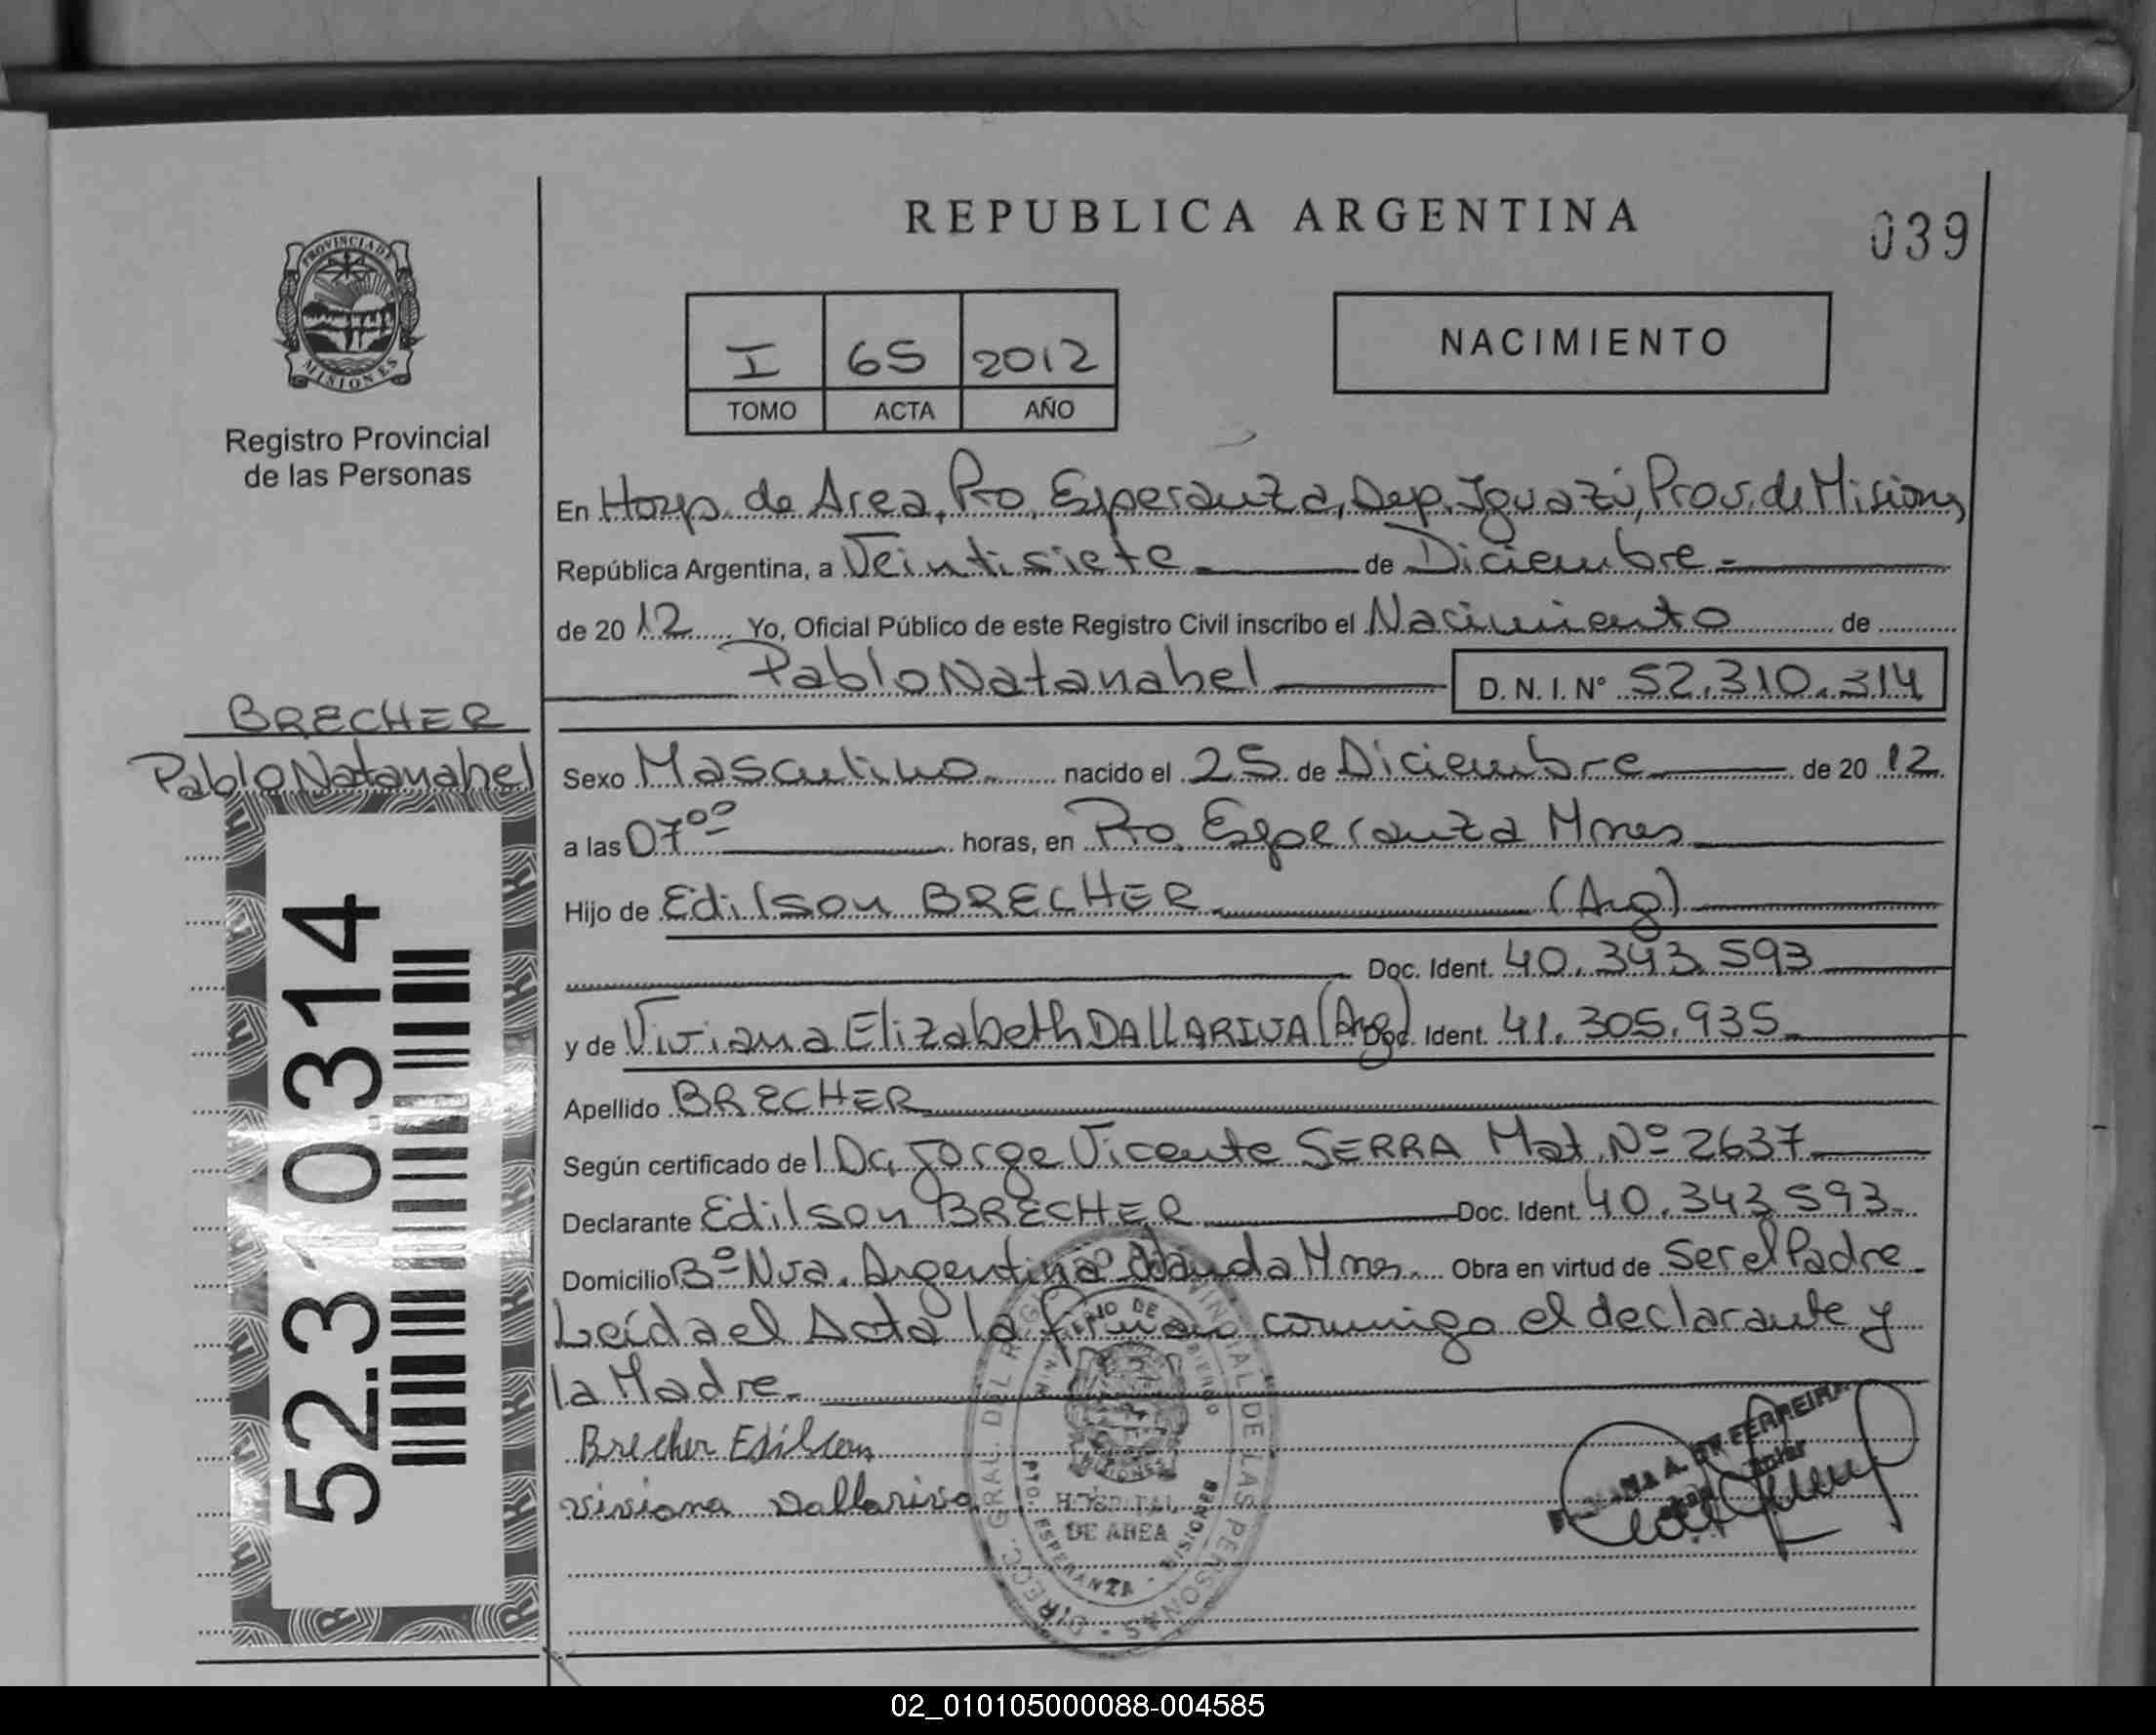 REPUBLICA ARGENTINA
039
PROVINCIA DE
MISIONES
Registro Provincial
de las Personas
I 65 2012
TOMO ACTA AÑO
NACIMIENTO
En Hosp. de Area, Pto. Esperanza, Dep. Iguazú, Prov. de Misiones
República Argentina, a Veintisiete de Diciembre
de 2012 Yo, Oficial Público de este Registro Civil inscribo el Nacimiento de
Pablo Natanahel D.N.I. Nº 52.310.314
BRECHER
Pablo Natanahel
52.310.314
Sexo Masculino nacido el 25 de Diciembre de 2012
a las 07⁰⁰ horas, en Pto. Esperanza Mnes
Hijo de Edilson BRECHER (Arg)
Doc. Ident. 40.343.593
y de Viviana Elizabeth DALLARIVA (Arg) Doc. Ident. 41.305.935
Apellido BRECHER
Según certificado del Dr. Jorge Vicente SERRA Mat. Nº 2637
Declarante Edilson BRECHER Doc. Ident. 40.343.593
Domicilio Bº Nva. Argentina Wanda Mnes. Obra en virtud de Ser el Padre
Leída el Acta la firman conmigo el declarante y
la Madre.
Brecher Edilson
Viviana Dallariva
DIRECC. GRAL. DEL REG. PROVINCIAL DE LAS PERSONAS
MINISTERIO DE GOBIERNO
MISIONES
HOSPITAL
DE AREA
PTO. ESPERANZA - MISIONES
A. DE FERREIRA
02_010105000088-004585